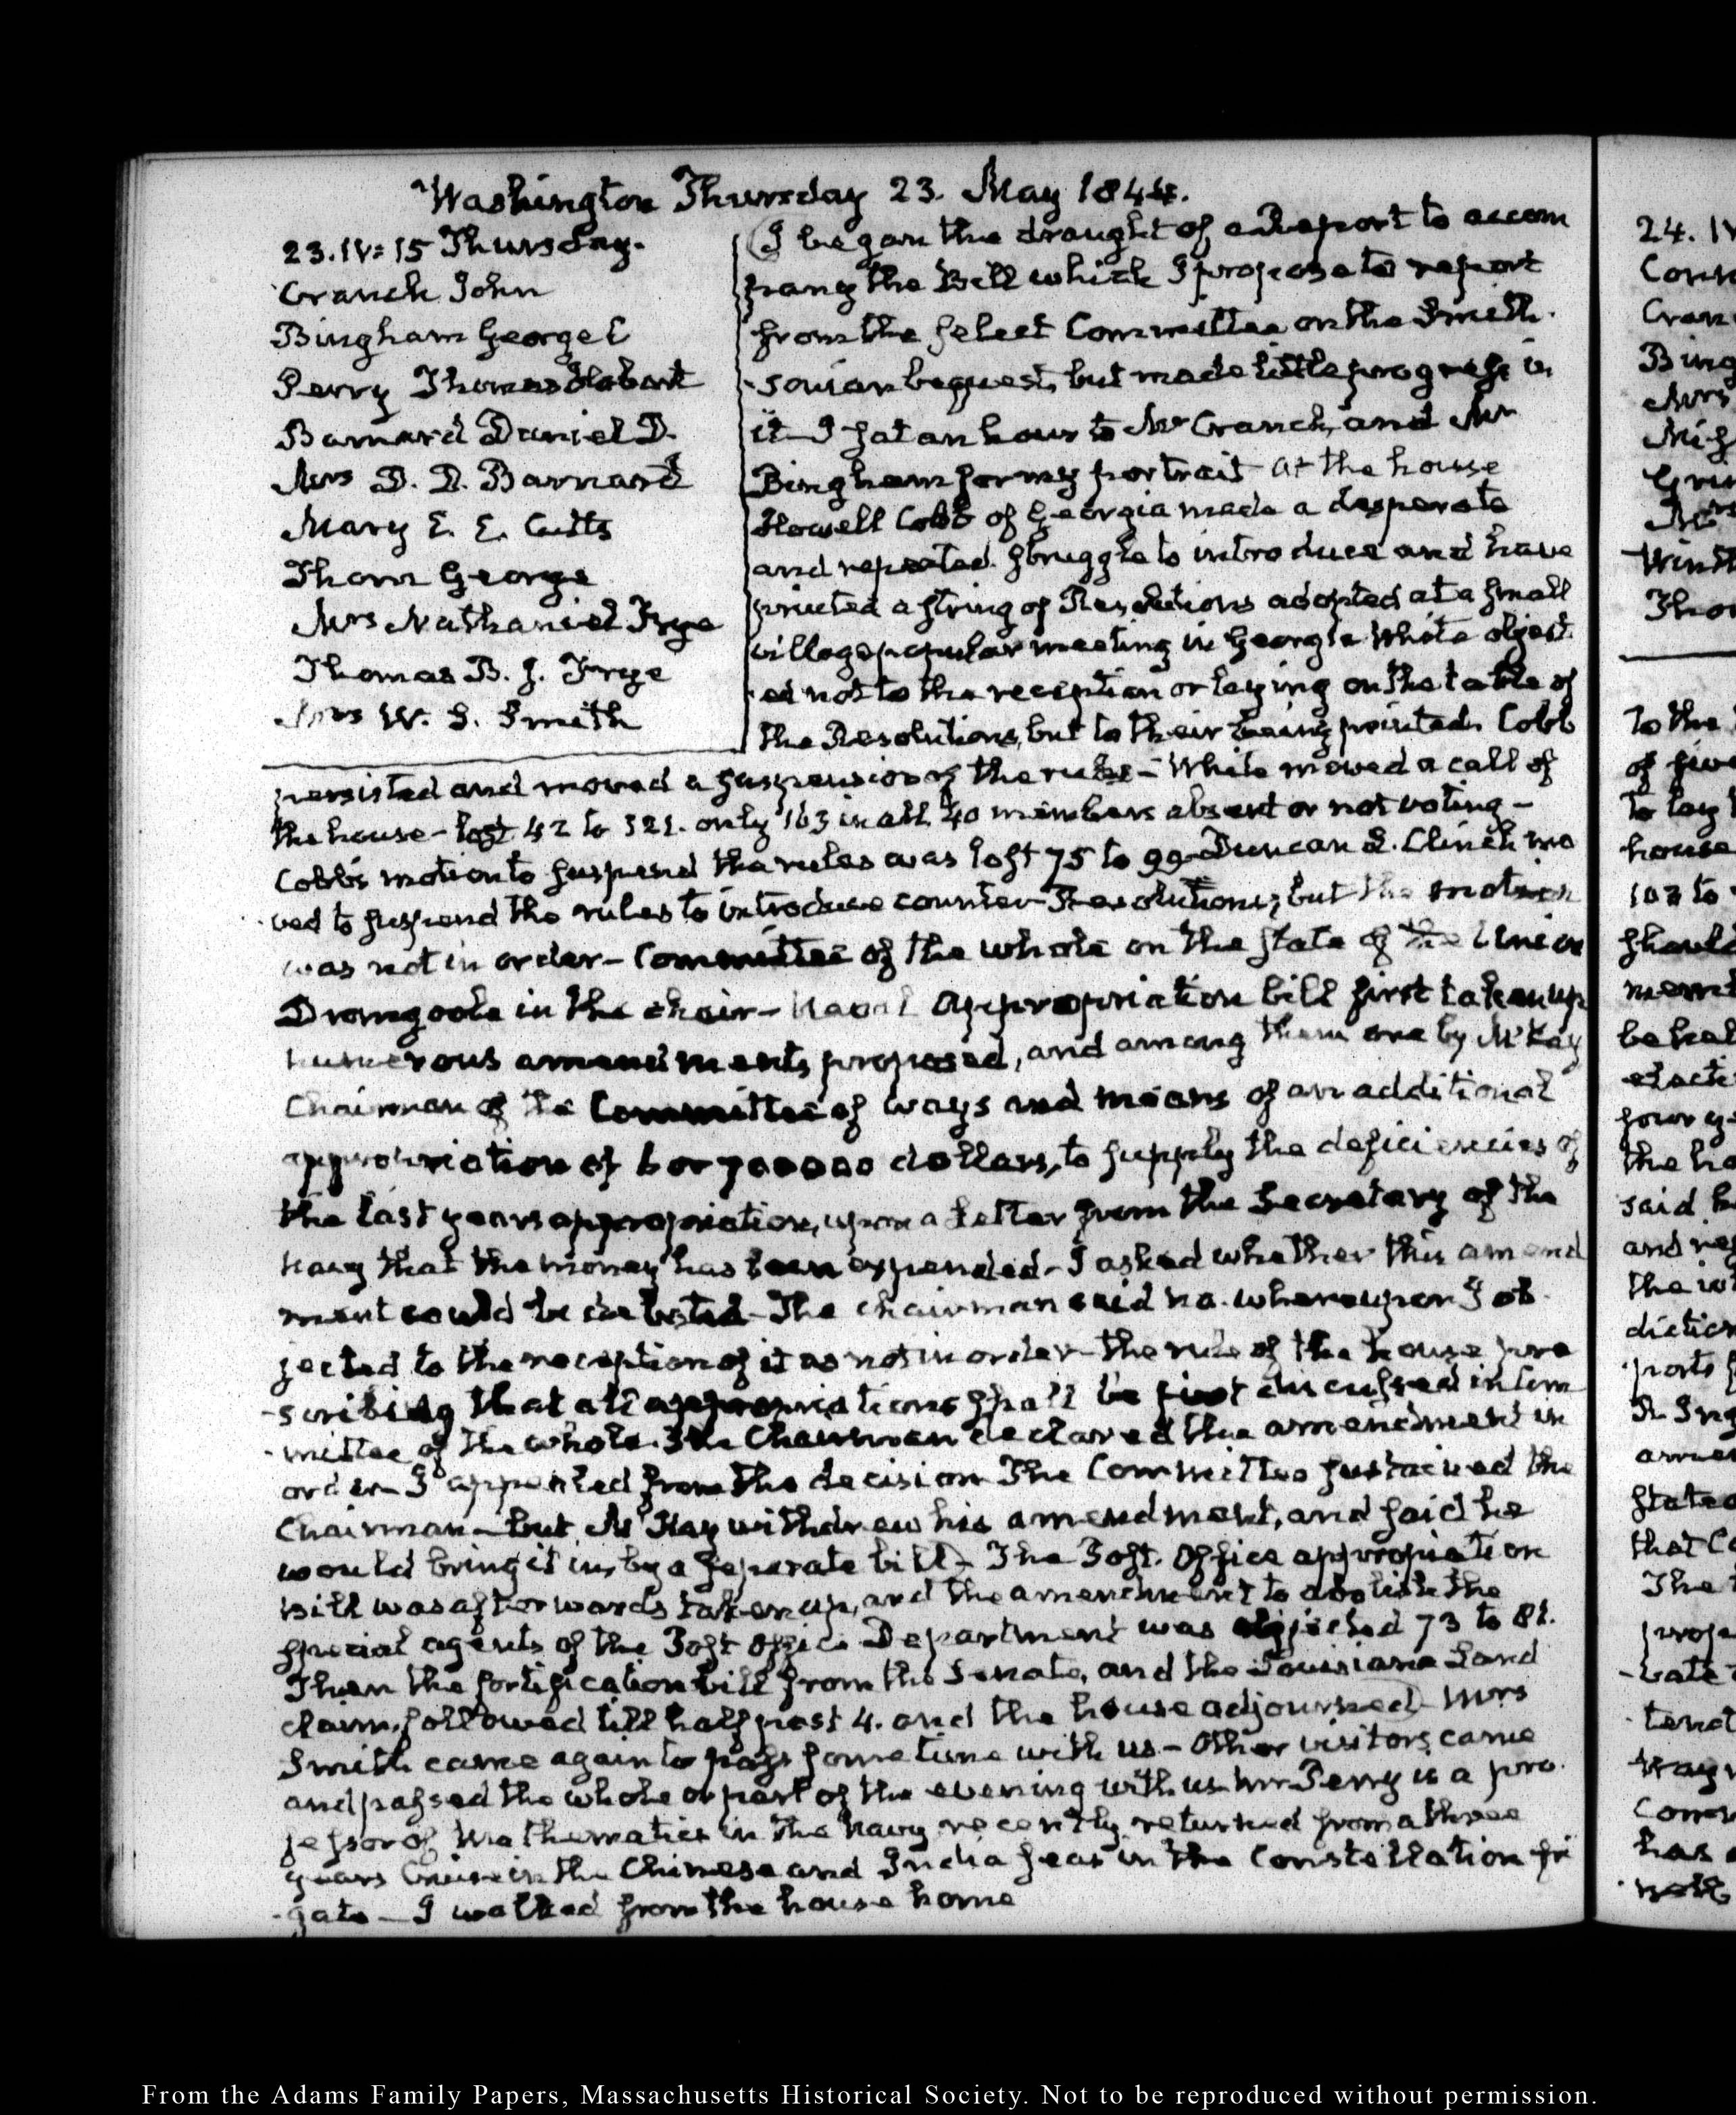 Washington Thursday 23. May 1844.
23. IV: 15 Thursday.
Cranch John
Bingham George C
Perry Thomas Hobart
Barnard Daniel D.
Mrs D. D. Barnard
Mary E. E. Cutts
Thom George
Mrs Nathaniel Frye
Thomas B. J. Frye
Mrs W. S. Smith
I began the draught of a Report to accom
pany the Bill which I propose to report
from the Select Committee on the Smith-
-sonian bequest, but made little progress in
it— I sat an hour to Mr Cranch, and Mr
Bingham for my portrait— At the house
Howell Cobb of Georgia made a desperate
and repeated struggle to introduce and have
printed a string of Resolutions adopted at a small
village popular meeting in Georgia White object
-ed not to the reception or laying on the table of
the Resolutions, but to their being printed. Cobb
persisted and moved a suspension of the rules— White moved a call of
the house— lost 42 to 121. only 163 in all 40 members absent or not voting—
Cobb's motion to suspend the rules was lost 75 to 99— Duncan L. Clinch mo
-ved to suspend the rules to introduce counter-Resolutions; but the motion
was not in order— Committee of the whole on the state of the Union
Dromgoole in the chair— Naval appropriation bill first taken up
numerous amendments proposed, and among them one by McKay
Chairman of the Committee of ways and means of an additional
appropriation of 6 or 700000 dollars, to supply the deficiencies of
the last years appropriation, upon a letter from the Secretary of the
Navy that the money has been expended— I asked whether this amend
ment could be debated— The chairman said no. whereupon I ob-
jected to the reception of it as not in order— the rule of the house pre
-scribing that all appropriations shall be first discussed in Com
-mittee of the whole. The Chairman declared the amendment in
order— I appealed from the decision The Committee sustained the
Chairman— but McKay withdrew his amendment, and said he
would bring it in, by a separate bill— The Post. Office appropriation
bill was afterwards taken up, and the amendment to abolish the
special agents of the Post Office Department was rejected 73 to 81.
Then the fortification bill from the Senate, and the Louisiana Land
claim, followed till half past 4. and the house adjourned— Mrs
Smith came again to pass some time with us— Other visitors came
and passed the whole or part of the evening with us Mr Perry is a pro-
fessor of Mathematics in the Navy recently returned from a three
years Cruise in the Chinese and India seas in the Constellation fri
-gate— I walked from the house home
24. IV
To the
house
103 to
said
and re
the
Thom
that C
The
has
From the Adams Family Papers, Massachusetts Historical Society. Not to be reproduced without permission.